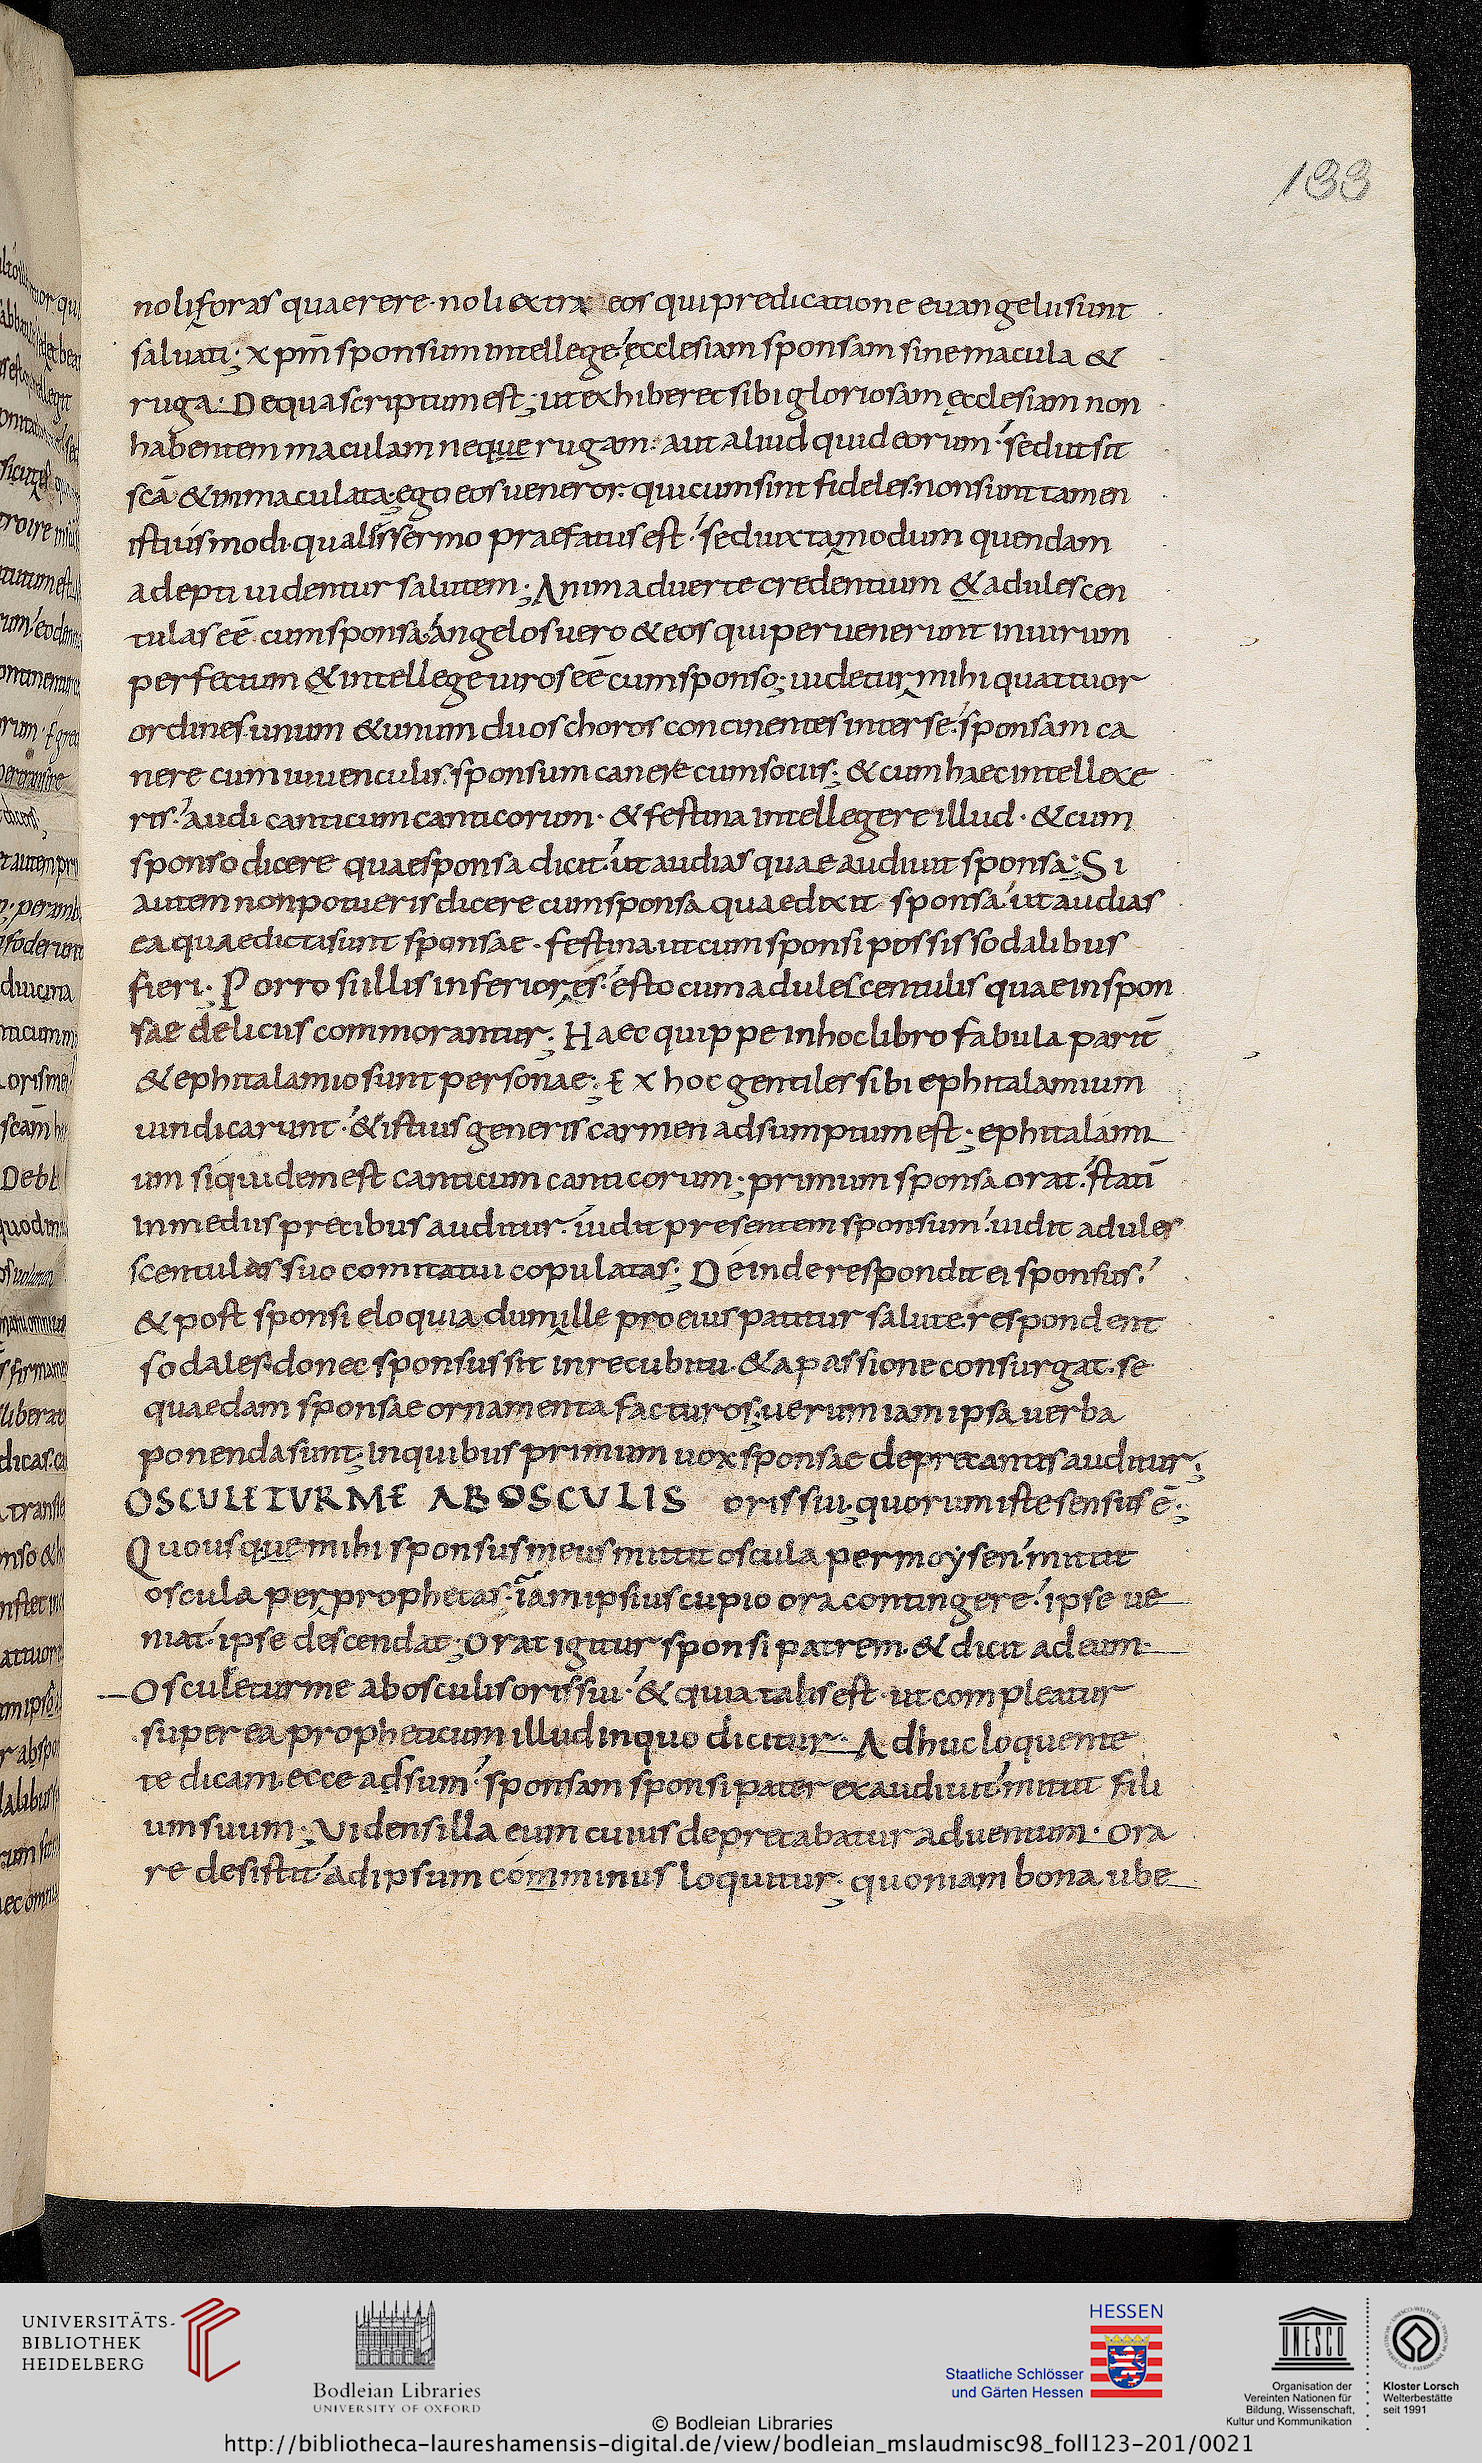 133
noli foras quaerere · noli extra eos qui predicatione euangelii sunt
saluati; xpm̄ sponsum intellege; ęcclesiam sponsam sine macula &
ruga; De qua scriptum est; ut exhiberet sibi gloriosam ęcclesiam non
habentem maculam neque rugam· aut aliud quid eorum; sed ut sit
scā & inmaculata; ego eos ueneror· qui cum sint fideles· non sunt tamen
istiusmodi· qualis sermo praefatus est; sed iuxta modum quendam
adepti uidentur salutem; Animaduerte credentium & adulescen
tulas eē cum sponsa; angelos uero & eos qui peruenerunt in uirum
perfectum & intellege uiros eē cum sponso; uidetur mihi quattuor
ordines unum & unum duos choros concinentes inter se; sponsam ca
nere cum iuuenculis· sponsum canere cum sociis; & cum haec intellexe
ris; audi canticum canticorum· & festina intellegere illud· & cum
sponso dicere quae sponsa dicit; ut audias quae audiuit sponsa; Si
autem non potueris dicere cum sponsa quae dixit sponsa; ut audias
ea quae dicta sunt sponsae· festina ut cum sponsi possis sodalibus
fieri· Porro si illis inferior es; esto cum adulescentulis quae in spon
sae deliciis commorantur; Haec quippe in hoc libro fabula parit̄
& ephitalamio sunt personae; Ex hoc gentiles sibi ephitalamium
uindicarunt; & istius generis carmen adsumptum est; ephitalami
um siquidem est canticum canticorum; primum sponsa orat; statī
in mediis precibus auditur; uidit presentem sponsum; uidit adules
scentulas suo comitatui copulatas; Deinde respondit ei sponsus;
& post sponsi eloquia dum ille pro eius patitur salute respondent
sodales· donec sponsus sit in recubitu· & a passione consurgat· se
quaedam sponsae ornamenta facturos; uerum iam ipsa uerba
ponenda sunt; in quibus primum uox sponsae deprecantis auditur;
OSCULETUR ME AB OSCULIS oris sui; quorum iste sensus ē;
Quousque mihi sponsus meus mittit oscula per moysen; mittit
oscula per prophetas· iam ipsius cupio ora contingere; ipse ue
niat; ipse descendat; Orat igitur sponsi patrem· & dicit ad eum·
Osculetur me ab osculis oris sui; & quia talis est· ut compleatur
super ea propheticum illud in quo dicitur· Adhuc loquente
te dicam ecce adsum; sponsam sponsi pater exaudiuit; mittit fili
um suum; Uidens illa eum cuius deprecabatur aduentum· ora
re desistit; ad ipsum comminus loquitur; quoniam bona ube
UNIVERSITÄTS-
BIBLIOTHEK
HEIDELBERG
Bodleian Libraries
UNIVERSITY OF OXFORD
HESSEN
Staatliche Schlösser
und Gärten Hessen
UNESCO
Organisation der
Vereinten Nationen für
Bildung, Wissenschaft,
Kultur und Kommunikation
Kloster Lorsch
Welterbestätte
seit 1991
© Bodleian Libraries
http://bibliotheca-laureshamensis-digital.de/view/bodleian_mslaudmisc98_foll123-201/0021